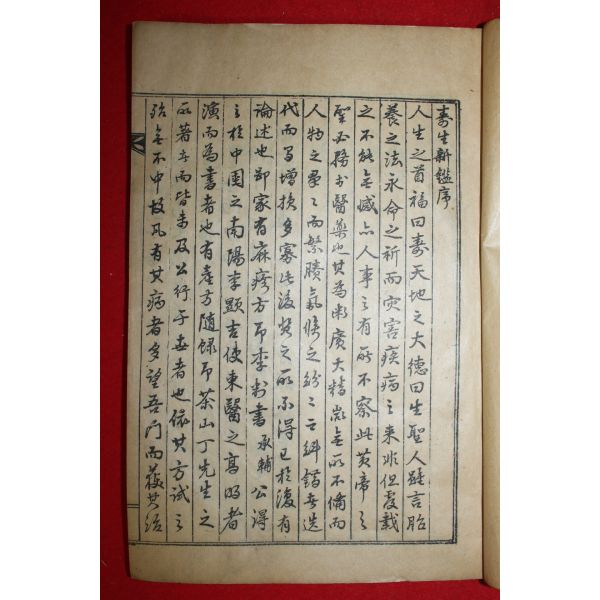 壽生新鑑序
人生之首福曰壽天地之大德曰生聖人雖言胎
養之法永命之祈而灾害疾病之来非但覆載
之不能無憾亦人事之有所不察此黃帝之
聖必務於醫藥也其為術廣大精微無所不備而
人物之衆而繁賾氣候之紛々云錯世迭
代而易增損多寡此後賢之所不得已於復有
論述也鄙家有麻疹方即李判書承輔公得
之於中國之南陽李顯吉使東醫之高明者
演而為書者也有產方隨錄即茶山丁先生之
所著而皆未及公行于世者也依其方試之
殆無不中故凡有其病者多望吾門而獲其治